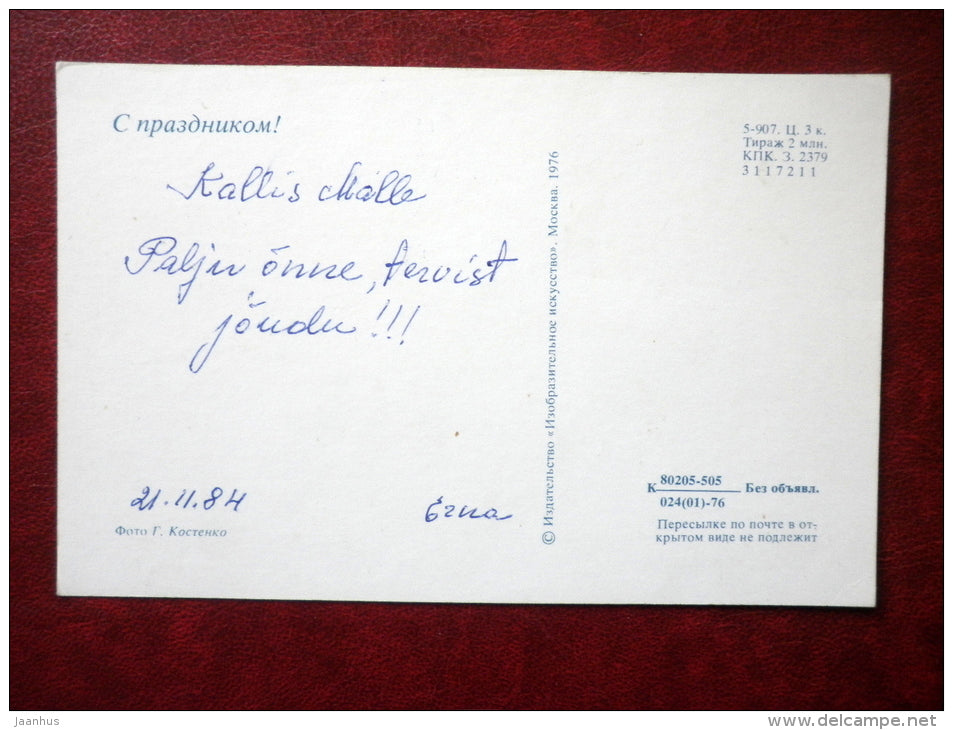 С праздником!
Kallis Malle
Palju õnne, tervist
jõudu!!!
21.11.84
Erna
Фото Г. Костенко
© Издательство «Изобразительное искусство». Москва. 1976
5-907. Ц. 3 к.
Тираж 2 млн.
КПК. З. 2379
3117211
К 80205-505 Без объявл.
024(01)-76
Пересылке по почте в от-
крытом виде не подлежит
jaanhus
www.delcampe.net